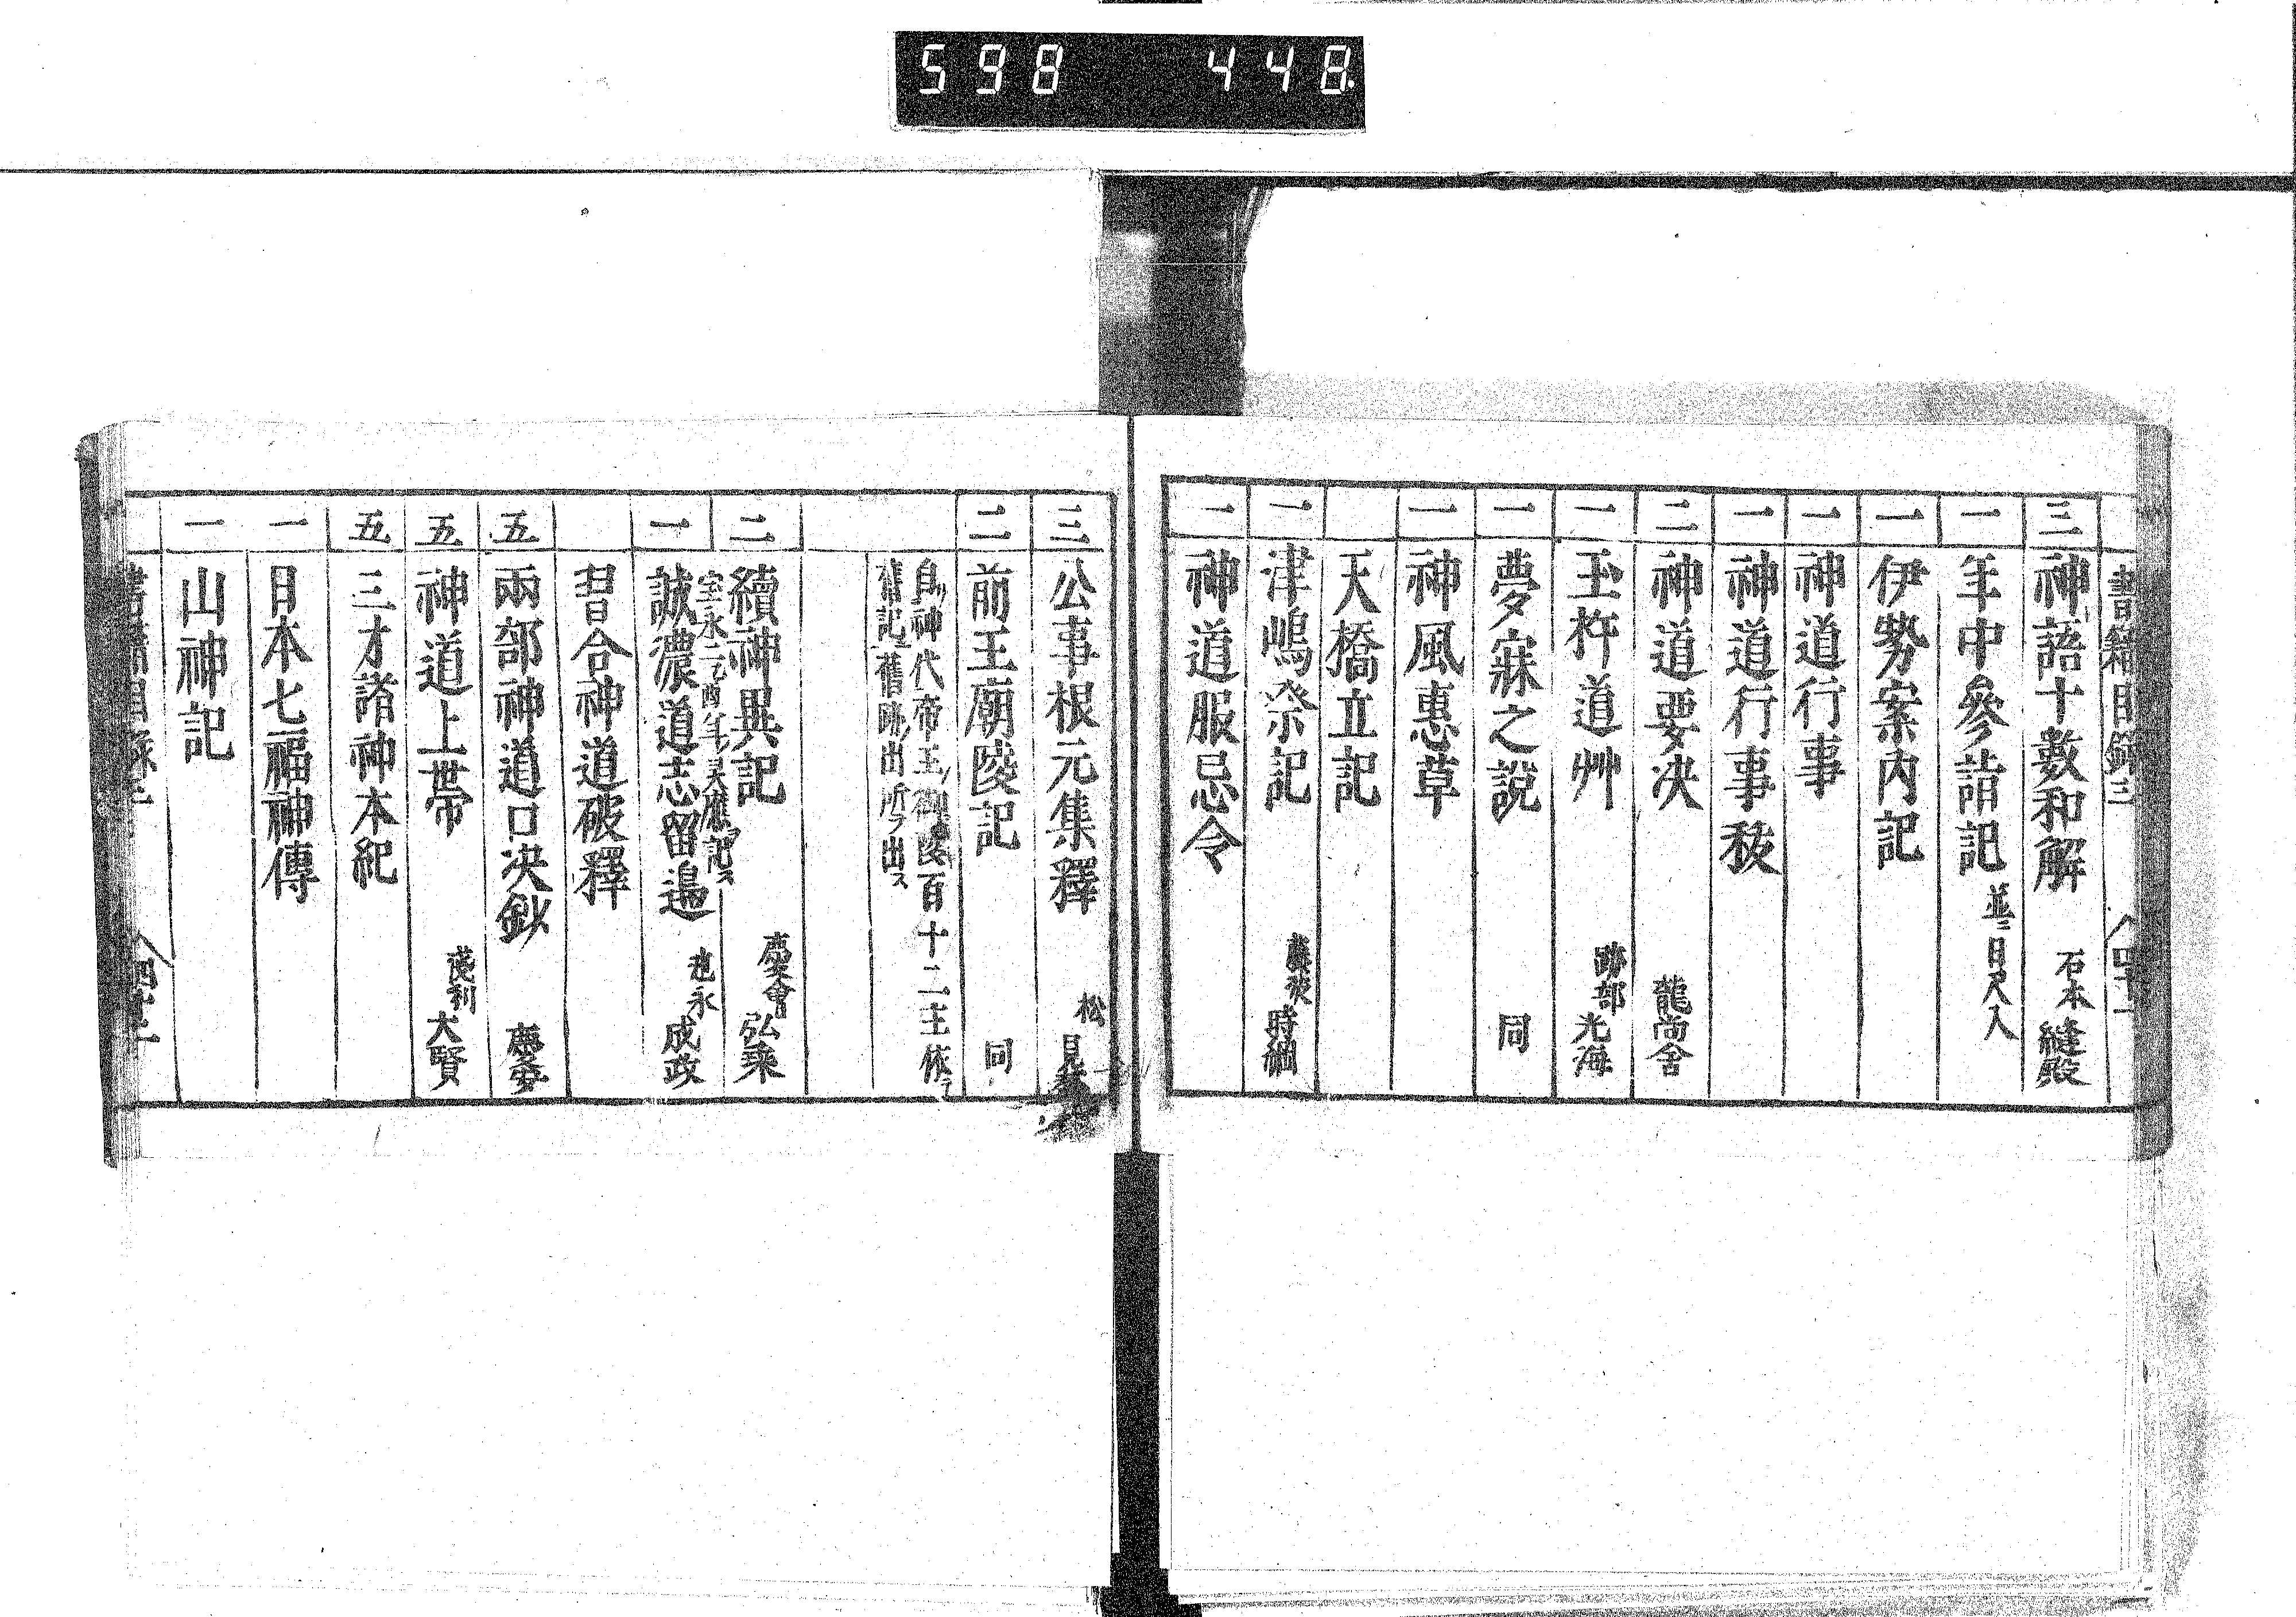 598 448
書籍目錄三 四十一
三 神語十數和解 石本 縫殿
一 年中參詣記 並ニ日尺入
一 伊勢案内記
一 神道行事
一 神道行事秡
二 神道要决 龍尚舍
一 玉杵道艸 跡部 光海
一 夢寐之説 同
一 神風惠草
天橋立記
一 津嶋祭記 時綱
一 神道服忌令
三 公事根元集釋 松 見
二 前王廟陵記 同
自神代帝王ノ御陵百十二主依テ
舊記ニ舊跡ノ出所ヲ出ス
二 續神異記 度會 弘乘
宝永二乙酉年ノ灵應ヲ記ス
一 誠濃道志留邉 遊永 成政
習合神道破釋
五 兩部神道口决鈔 慶安
五 神道上世帶 大賢
五 三才諸神本紀
一 日本七福神傳
一 山神記
書籍目錄三